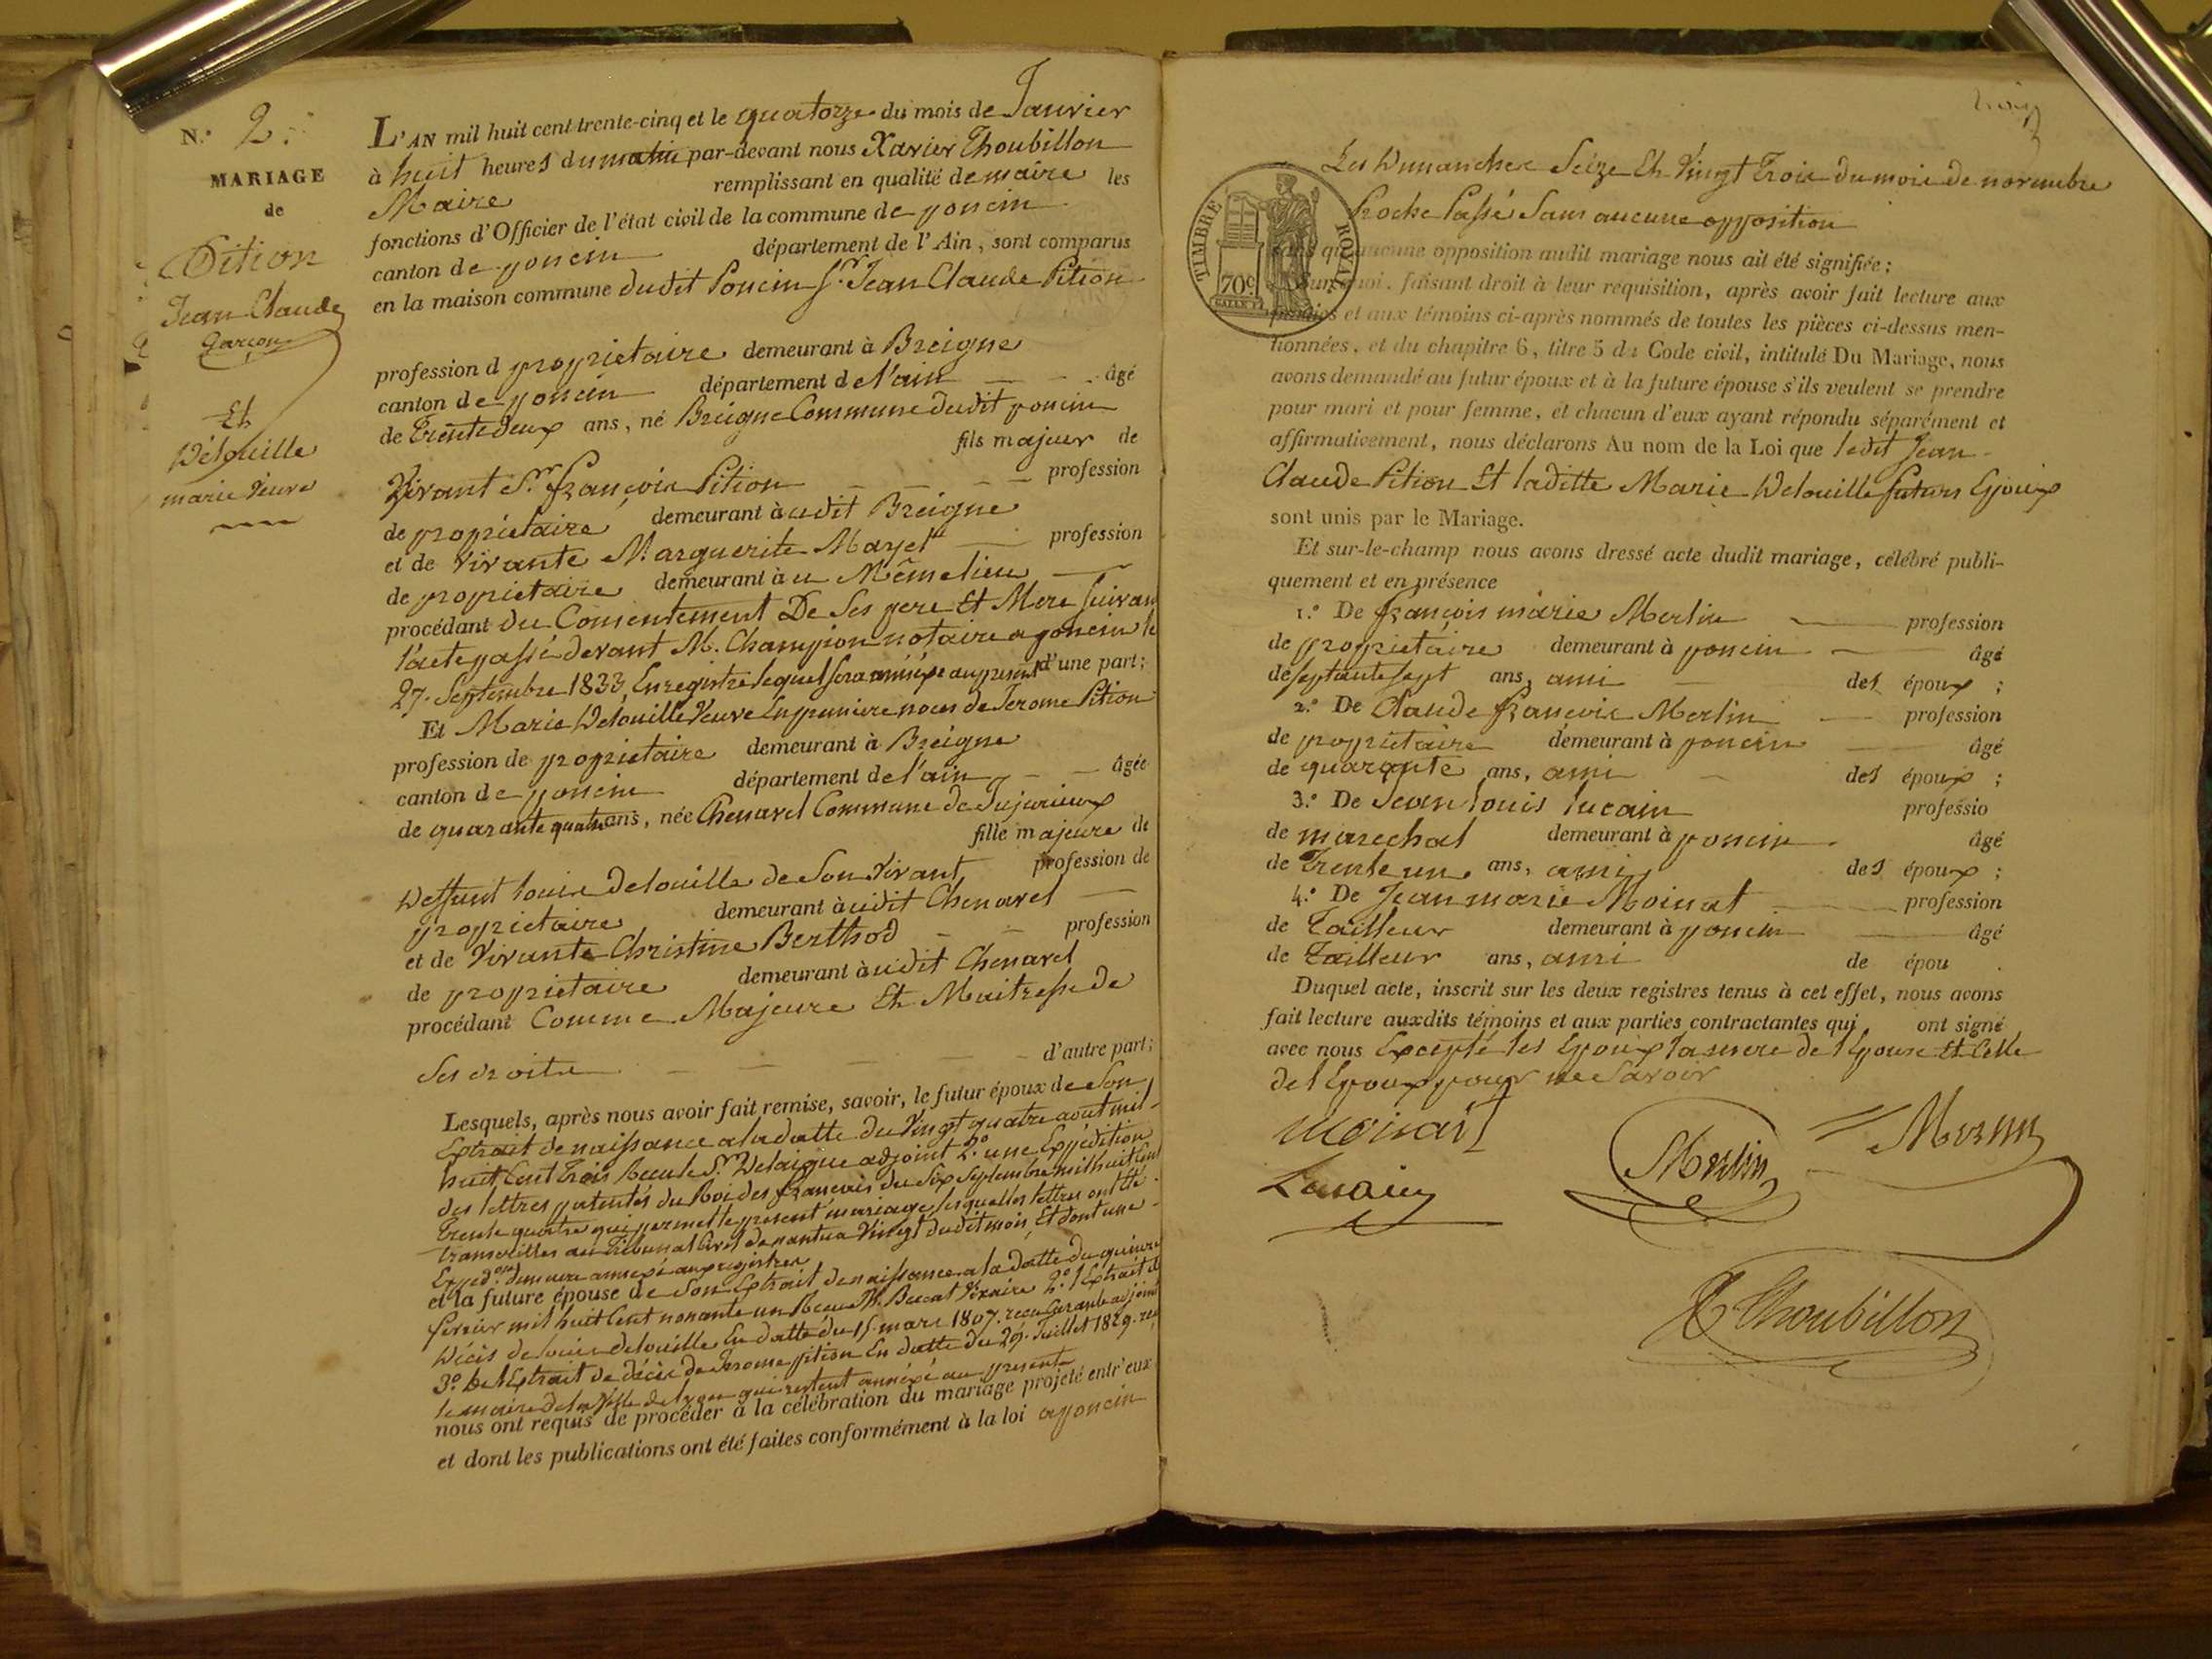 N.° 2.
MARIAGE
de
Pition
Jean Claude
Garçon
Et
Delouille
marie Veuve
L'AN mil huit cent trente-cinq et le quatorze du mois de Janvier
à huit heures du matin par-devant nous Xavier Thoubillon
Maire remplissant en qualité de maire les
fonctions d'Officier de l'état civil de la commune de poncin
canton de poncin département de l'Ain, sont comparus
en la maison commune dudit Poncin Sr. Jean Claude Pition
profession d proprietaire demeurant à Breigne
canton de poncin département de l'ain âgé
de Trente deux ans, né Breigne Commune dudit poncin
fils majeur de
Vivant Sr. françois Pition profession
de propriétaire demeurant à udit Breigne
et de Vivante Marguerite Mayet profession
de propriétaire demeurant à u Même lieu
procédant du Consentement De Ses pere Et Mere suivan
l'acte passé devant M. Champion notaire a poncin le
27. Septembre 1833 Enregistré lequel sera annéxé au present d'une part;
Et Marie Delouille Veuve En premiere noces de Jerome Pition
profession de propriétaire demeurant à Breigne
canton de poncin département de l'ain âgée
de quarante quatre ans, née Chenavel Commune de Jujurieux
fille majeure de
Deffunt Louis Delouille de Son Vivant profession de
propriétaire demeurant à udit Chenavel
et de Vivante Christine Berthod profession
de propriétaire demeurant à udit Chenavel
procédant Comme Majeure Et Maitresse de
Ses droits d'autre part;
Lesquels, après nous avoir fait remise, savoir, le futur époux de Son
Extrait de naissance a la datte du Vingt quatre aout mil
huit Cent Trois Sr. Delaigue adjoint 2.° une Expédition
des lettres patentés du Roi des français du Six Septembre mil huit Cent
Trente quatre qui permet le present mariage lesquelles lettres ont été
transcrittes au Tribunal Civil de nantua Vingt dudit mois, Et dont une
Exped.on demeure annexé aux registres
et la future épouse de Son Extrait de naissance a la datte du quinze
fevrier mil huit Cent nonante un M. Vicaire 2.° l'Extrait de
Décés de Louis delouille En datte du 15. mars 1807. recu adjoint
3.° de l'Extrait de décés de Jerome pition En datte du 29. Juillet 1829.
le maire de la Ville de Lyon qui restent annéxé au present
nous ont requis de procéder à la célébration du mariage projeté entr'eux
et dont les publications ont été faites conformément à la loi a poncin
Les Dimanches Seize Et Vingt Trois du mois de novembre
Proche Passé Sans aucune opposition
TIMBRE ROYAL
70c
sans qu'aucune opposition audit mariage nous ait été signifiée;
Sur quoi, faisant droit à leur requisition, après avoir fait lecture aux
parties et aux témoins ci-après nommés de toutes les pièces ci-dessus men-
tionnées, et du chapitre 6, titre 5 du Code civil, intitulé Du Mariage, nous
avons demandé au futur époux et à la future épouse s'ils veulent se prendre
pour mari et pour femme, et chacun d'eux ayant répondu séparément et
affirmativement, nous déclarons Au nom de la Loi que ledit Jean
Claude Pition Et laditte Marie Delouille futurs Epoux
sont unis par le Mariage.
Et sur-le-champ nous avons dressé acte dudit mariage, célébré publi-
quement et en présence
1.° De françois marie Merlin profession
de propriétaire demeurant à poncin âgé
de septante sept ans, ami des époux ;
2.° De Claude françois Merlin profession
de propriétaire demeurant à poncin âgé
de quarante ans, ami des époux ;
3.° De Jean Louis Lucain professio
de marechal demeurant à poncin âgé
de Trente un ans, ami des époux ;
4.° De Jean marie Moinat profession
de Tailleur demeurant à poncin âgé
de Tailleur ans, ami de épou
Duquel acte, inscrit sur les deux registres tenus à cet effet, nous avons
fait lecture auxdits témoins et aux parties contractantes qui ont signé
avec nous Excepté les Epoux la mere de l'Epouse Et Celle
de l'Epoux pour ne Savoir
Moinat
Merlin
Lucain
Merlin
X Thoubillon